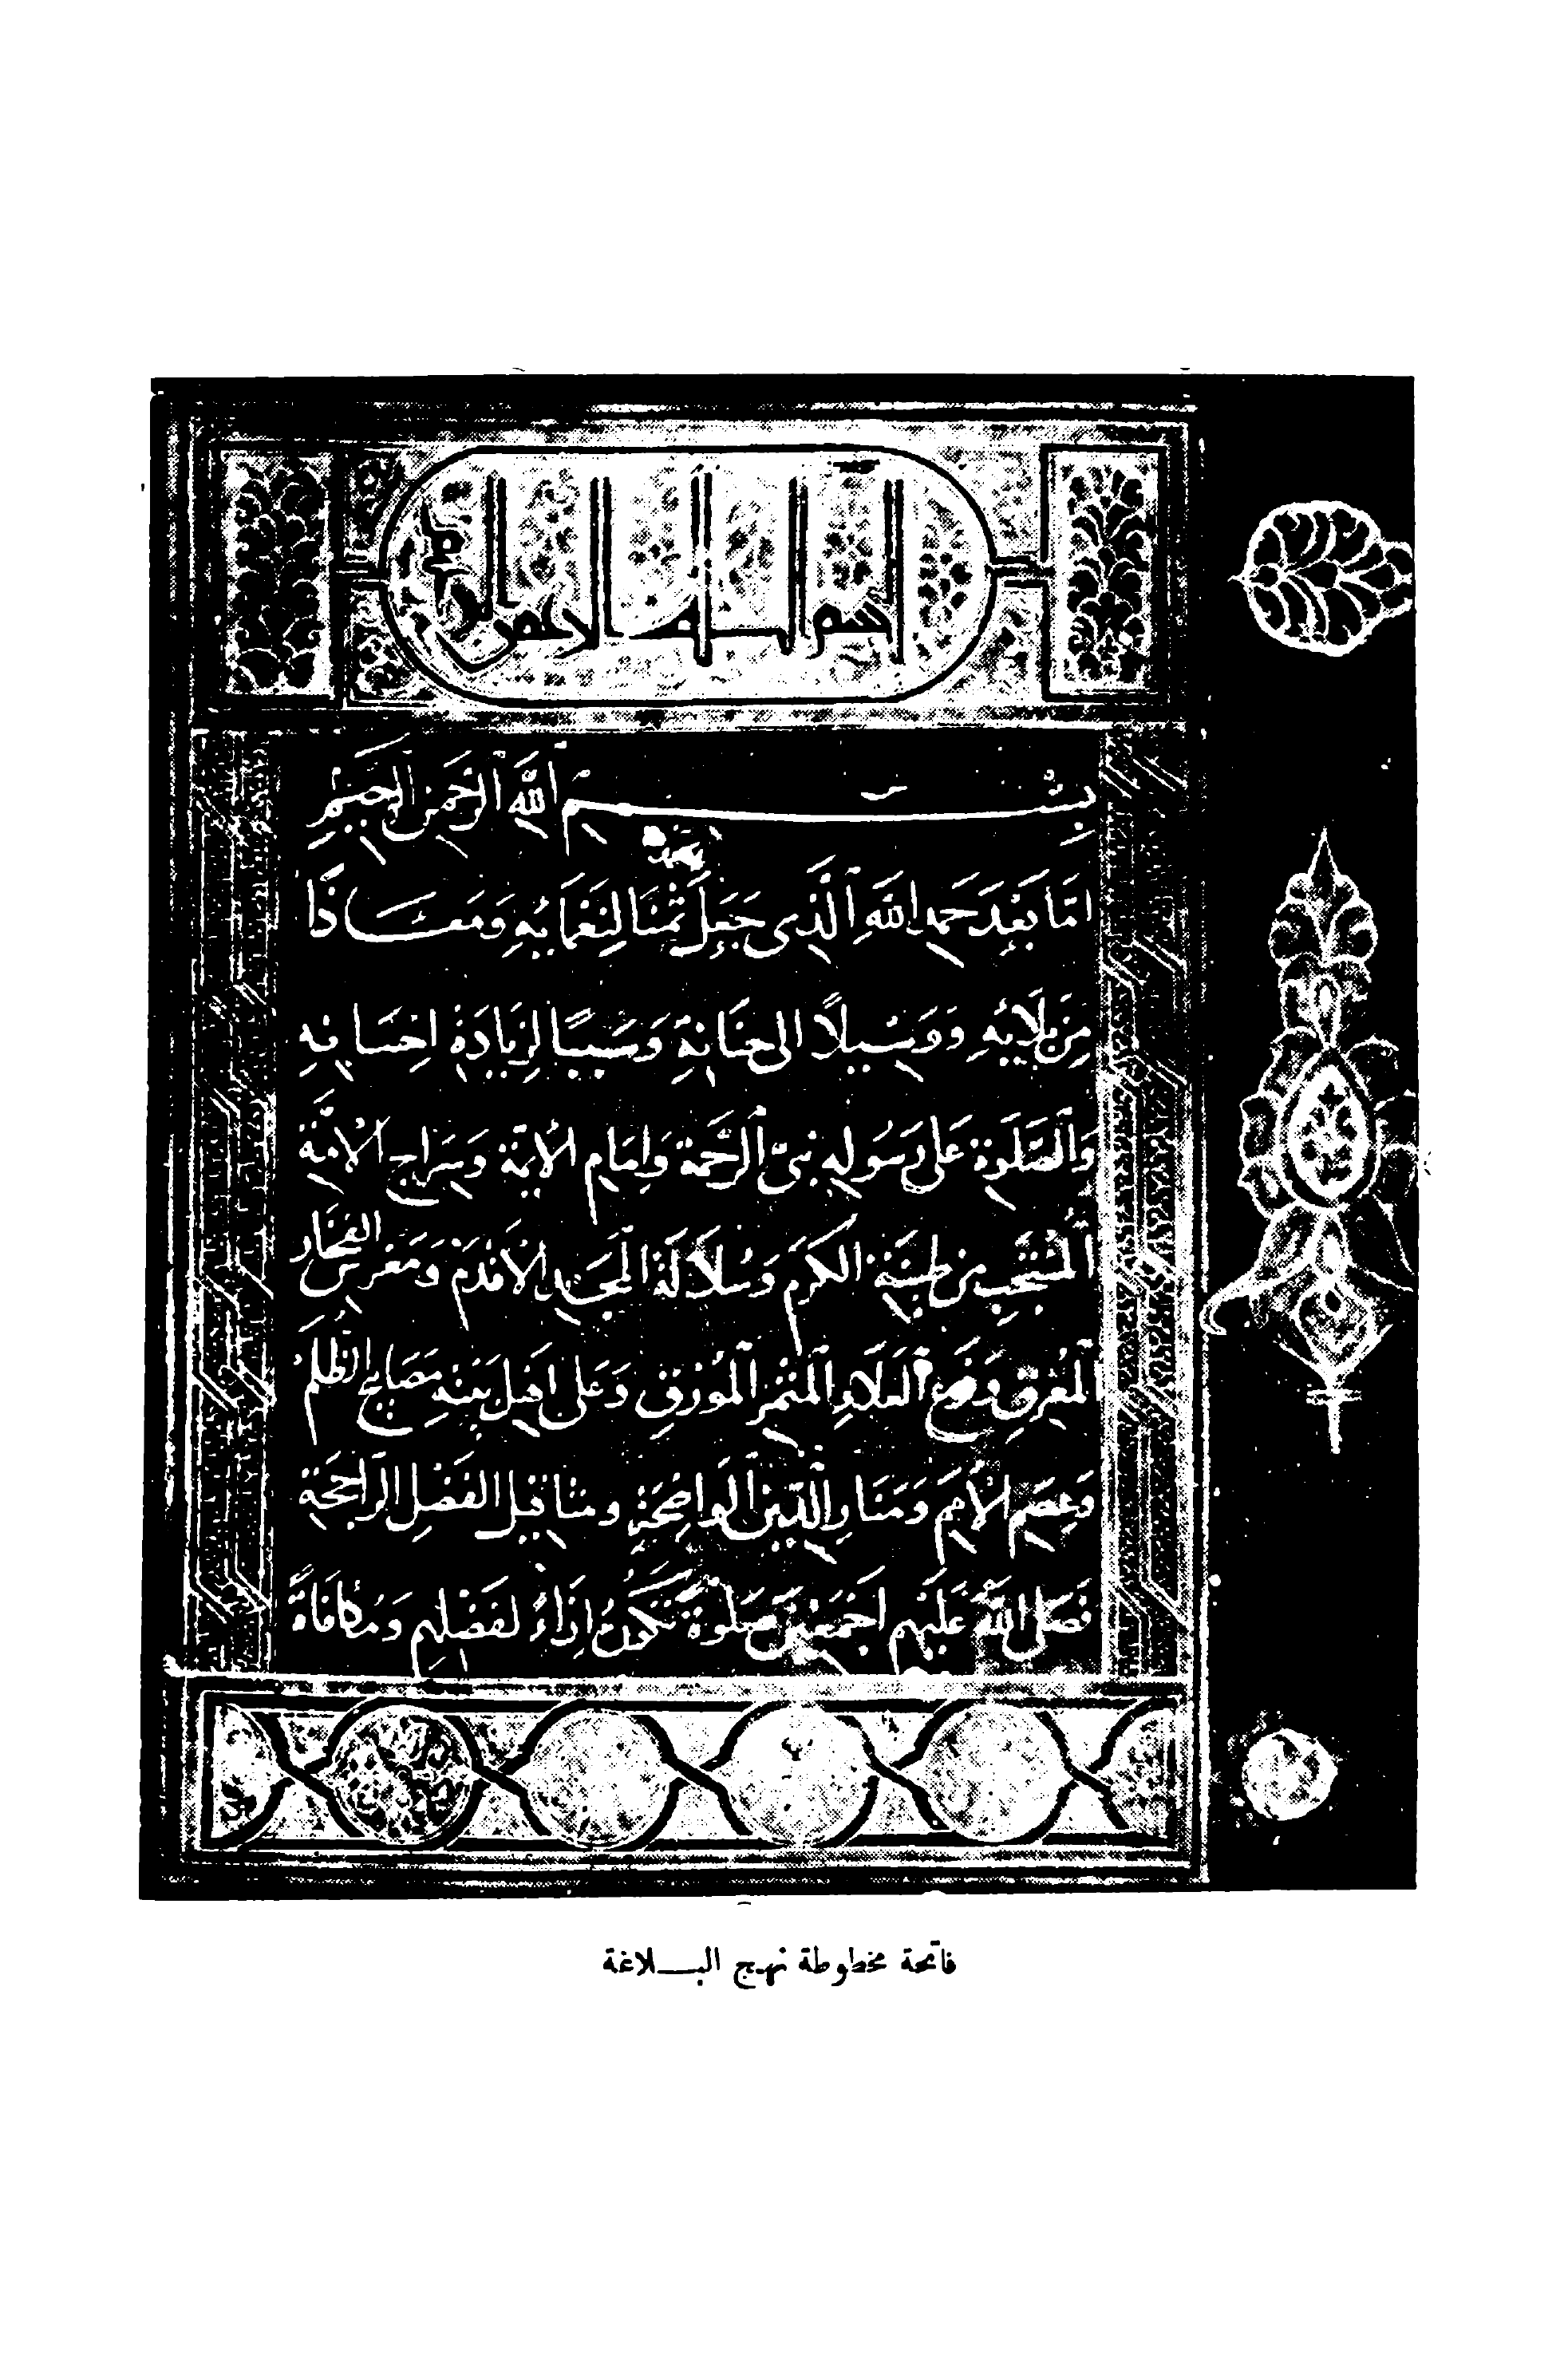 بسم الله الرحمن الرحيم
اَمَّا بَعْدَ حَمْدِ اللهِ الَّذِي جَعَلَ ثَمَنًا لِنَعْمَائِهِ وَمَعَاذًا
مِنْ بَلَائِهِ وَوَسِيلًا الى جنَانِهِ وَسَبَبًا لِزِيَادَةِ اِحْسَانِهِ
وَالصَّلَوةِ عَلَى رَسُولِهِ نبىِّ الرَّحْمَةِ وَاِمَامِ الْأَئِمَّةِ وَسِرَاجِ الْأُمَّةِ
الْمُنتَجَبِ مِنْ طِينَةِ الكَرَمِ وَسُلَالَةِ الْمَجْدِ الْأَقْدَمِ وَمَغْرِسِ الفَخَارِ
الْمُعْرِقِ وَفَرْعِ الْعَلَاءِ الْمُثْمِرِ الْمُورِقِ وَعَلَى اَهْلِ بَيْتِهِ مَصَابِيحِ الظُّلَمِ
وَعِصَمِ الْأُمَمِ وَمَنَارِ الدِّينِ الْوَاضِحَةِ ومثَاقِيلِ الفَضْلِ الرَّاجِحَةِ
فَصَلَّى اللهُ عَلَيْهِم اَجْمَعِينَ صَلَوةً تَكُونُ اِزَاءً لفَضْلِهِم وَمُكَافَاةً
فاتحة مخطوطة نهج البـــلاغة